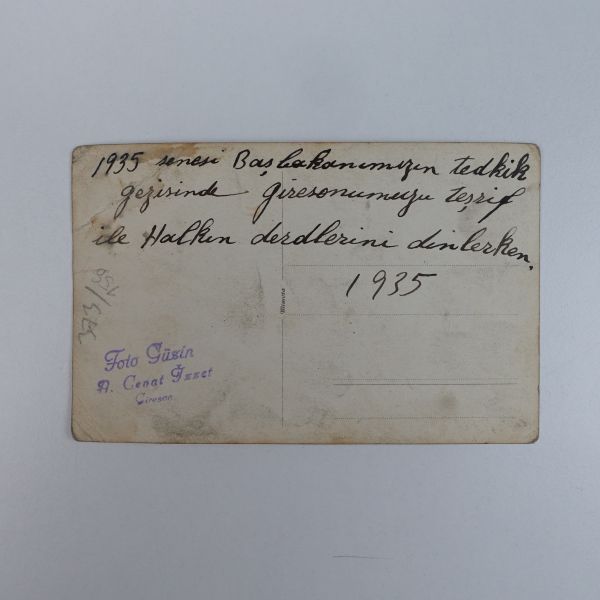 1935 senesi Başbakanımızın tedkik
gezisinde Giresonumuzu teşrif
ile Halkın derdlerini dinlerken.
1935
Foto Güzin
A. Cenat İzzet
Gireson